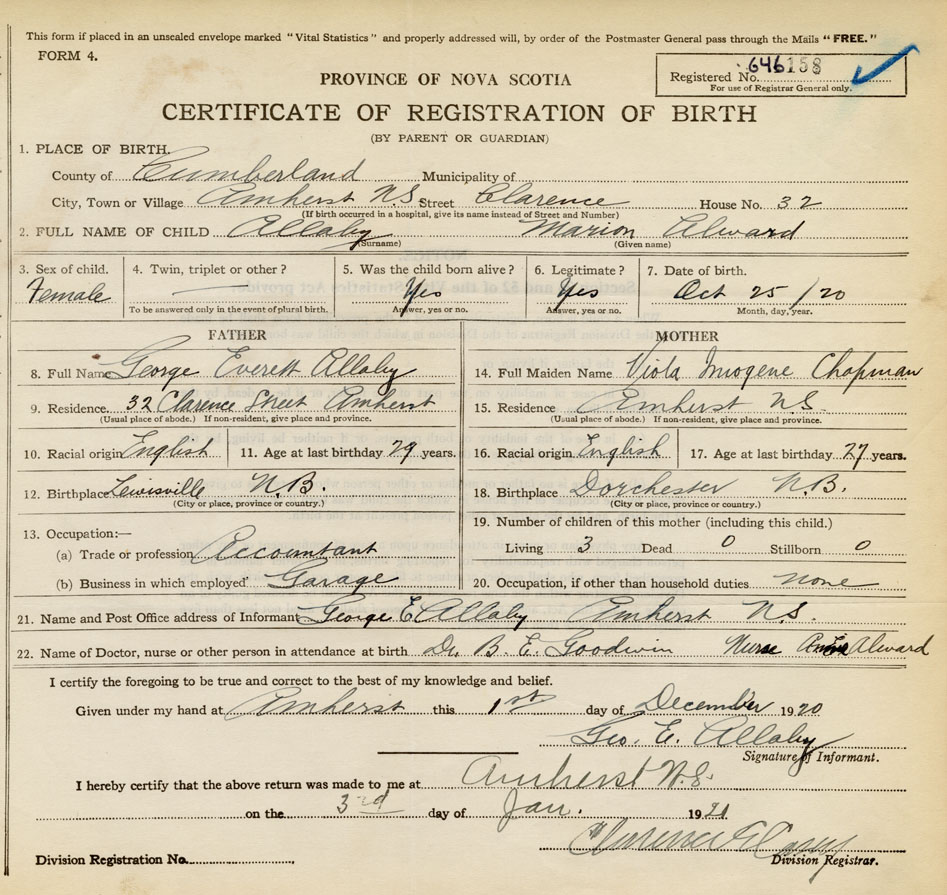 This form if placed in an unsealed envelope marked "Vital Statistics" and properly addressed will, by order of the Postmaster General pass through the Mails "FREE."
FORM 4.
PROVINCE OF NOVA SCOTIA
Registered No. 646158
For use of Registrar General only.
CERTIFICATE OF REGISTRATION OF BIRTH
(BY PARENT OR GUARDIAN)
1. PLACE OF BIRTH.
County of Cumberland Municipality of
City, Town or Village Amherst N.S. Street Clarence House No. 32
(If birth occurred in a hospital, give its name instead of Street and Number)
2. FULL NAME OF CHILD Allaby Marion Alward
(Surname) (Given name)
3. Sex of child. 4. Twin, triplet or other? 5. Was the child born alive? 6. Legitimate? 7. Date of birth.
Female Yes Yes Oct 25/20
To be answered only in the event of plural birth. Answer, yes or no. Answer, yes or no. Month, day, year.
FATHER MOTHER
8. Full Name George Everett Allaby 14. Full Maiden Name Viola Imogene Chapman
9. Residence. 32 Clarence Street Amherst 15. Residence Amherst N.S.
(Usual place of abode.) If non-resident, give place and province. (Usual place of abode.) If non-resident, give place and province.
10. Racial origin English 11. Age at last birthday 29 years. 16. Racial origin English 17. Age at last birthday 27 years.
12. Birthplace Lewisville N.B. 18. Birthplace Dorchester N.B.
(City or place, province or country.) (City or place, province or country.)
13. Occupation:— 19. Number of children of this mother (including this child.)
(a) Trade or profession Accountant Living 3 Dead 0 Stillborn 0
(b) Business in which employed Garage 20. Occupation, if other than household duties. none
21. Name and Post Office address of Informant George E Allaby Amherst N.S.
22. Name of Doctor, nurse or other person in attendance at birth Dr. B. E. Goodwin Nurse Alward
I certify the foregoing to be true and correct to the best of my knowledge and belief.
Given under my hand at Amherst this 1st day of December 1920
Geo. E. Allaby
Signature of Informant.
I hereby certify that the above return was made to me at Amherst N.S.
on the 3rd day of Jan. 1921
Division Registration No. Division Registrar.